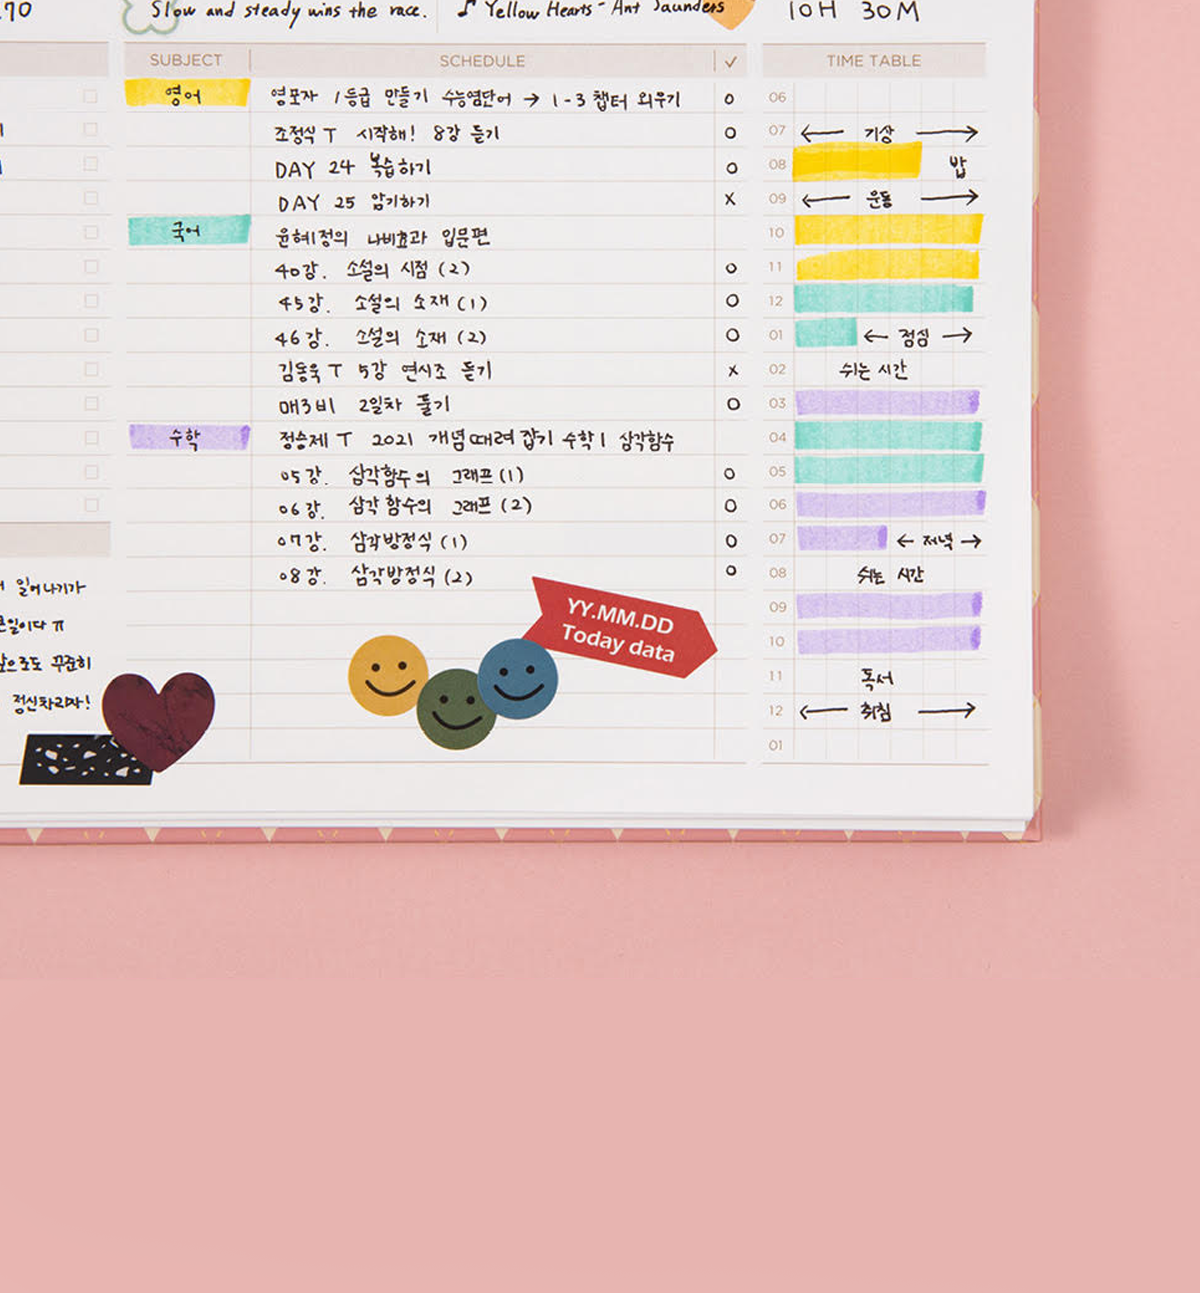 .70
Slow and steady wins the race.
♪ Yellow Hearts - Ant Saunders
10H 30M
SUBJECT SCHEDULE ✓
영어 영포자 1등급 만들기 수능영단어 → 1-3 챕터 외우기 o
조정식 T 시작해! 8강 듣기 o
DAY 24 복습하기 o
DAY 25 암기하기 x
국어 윤혜정의 나비효과 입문편
40강. 소설의 시점 (2) o
45강. 소설의 소재 (1) o
46강. 소설의 소재 (2) o
김동욱 T 5강 연시조 듣기 x
매3비 2일차 풀기 o
수학 정승제 T 2021 개념때려잡기 수학1 삼각함수
05강. 삼각함수의 그래프 (1) o
06강. 삼각함수의 그래프 (2) o
07강. 삼각방정식 (1) o
08강. 삼각방정식 (2) o
YY.MM.DD
Today data
TIME TABLE
06
07 ← 기상 →
08 밥
09 ← 운동 →
10
11
12
01 ← 점심 →
02 쉬는 시간
03
04
05
06
07 ← 저녁 →
08 쉬는 시간
09
10
11 독서
12 ← 취침 →
01
일어나기가
큰일이다 ㅠ
앞으로도 꾸준히
정신차리자!